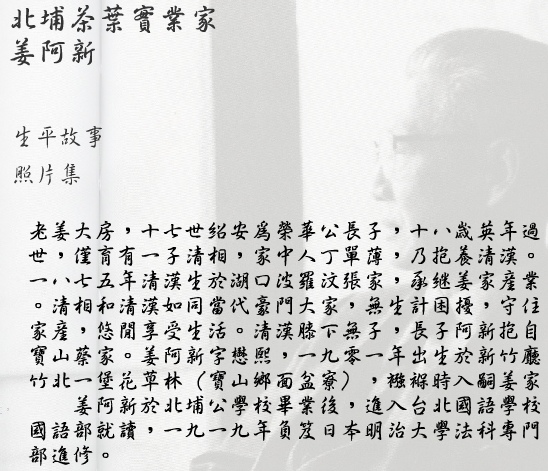 北埔茶葉實業家
姜阿新
生平故事
照片集
老姜大房，十七世紹安為榮華公長子，十八歲英年過
世，僅育有一子清相，家中人丁單薄，乃抱養清漢。
一八七五年清漢生於湖口波羅汶張家，承繼姜家產業
。清相和清漢如同當代豪門大家，無生計困擾，守住
家產，悠閒享受生活。清漢膝下無子，長子阿新抱自
寶山蔡家。姜阿新字懋熙，一九零一年出生於新竹廳
竹北一堡花草林（寶山鄉面盆寮），襁褓時入嗣姜家
姜阿新於北埔公學校畢業後，進入台北國語學校
國語部就讀，一九一九年負笈日本明治大學法科專門
部進修。